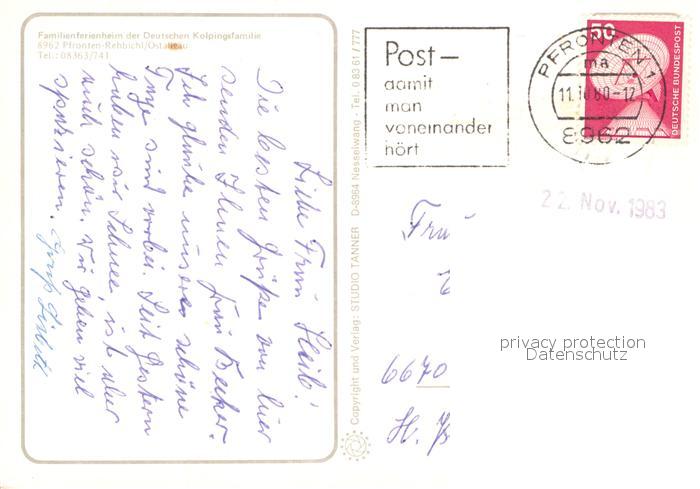 Familienferienheim der Deutschen Kolpingsfamilie
8962 Pfronten-Rehbichl/Ostallgäu
Tel.: 08363/741
Liebe Frau Heib!
Die besten Grüße von hier
senden Ihnen Frau Becker.
Ich glaube unsere schöne
Tage sind vorbei. Seit Gestern
haben wir Schnee, ist aber
auch schön. Wir gehen viel
spazieren.
Gruß
Copyright und Verlag: STUDIO TANNER D-8964 Nesselwang - Tel. 0 83 61 / 777
Post-
damit
man
voneinander
hört
PFRONTEN 1
ma
11.10.80-12
8962
50
DEUTSCHE BUNDESPOST
22. Nov. 1983
Frau
privacy protection
Datenschutz
6670